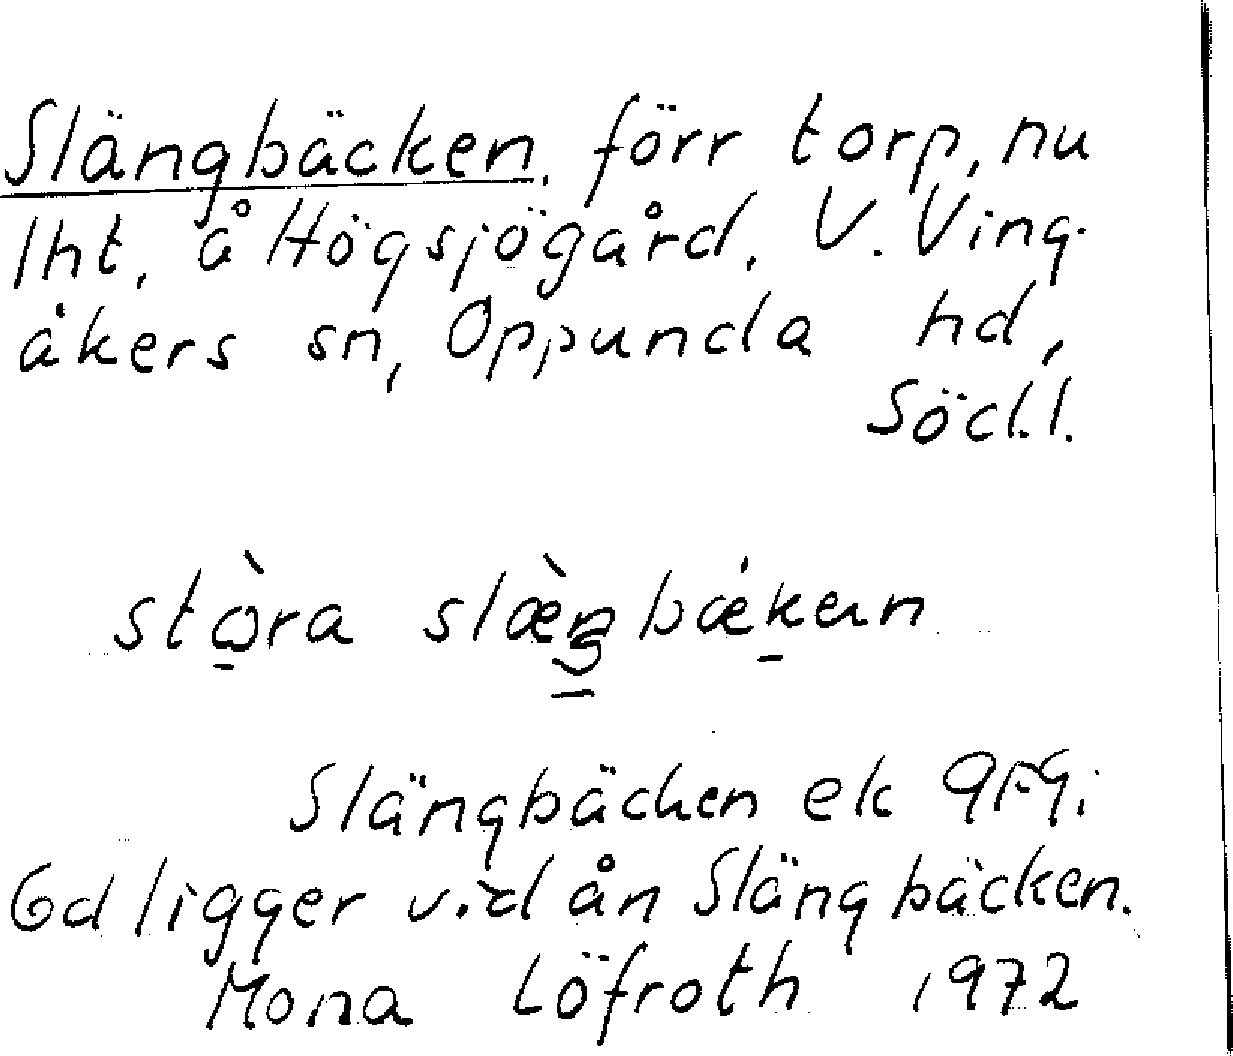 Slängbäcken, förr torp, nu
lht, å Högsjögård, V. Ving-
åkers sn, Oppunda hd,
Södl.l.
stòra slæ̀ŋbækən
Slängbäcken ek 9F9i
Gd ligger vid ån Slängbäcken.
Mona Löfroth 1972